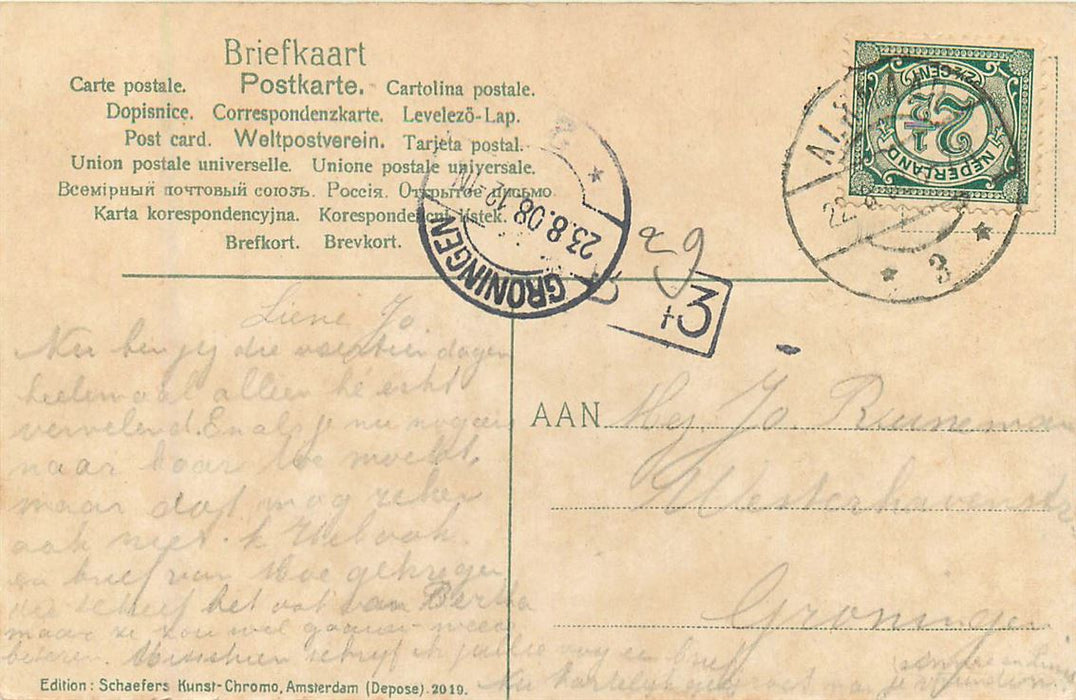 Briefkaart
Carte postale. Postkarte. Cartolina postale.
Dopisnice. Correspondenzkarte. Levelező-Lap.
Post card. Weltpostverein. Tarjeta postal.
Union postale universelle. Unione postale universale.
Всемірный почтовый союзъ. Россія. Открытое письмо.
Karta korespondencyjna. Korespondencni listek.
Brefkort. Brevkort.
2½ CENT
2½
NEDERLAND
22.
3
GRONINGEN
23.8.08.12
29
+3
Lieve Jo.
Nu ben jij die dagen
heelemaal alleen hè echt
vervelend. En als je nu nog eens
naar toe mocht,
maar dat mag zeker
ook niet. Ik heb ook
een brief van gekregen
het ook van Bertha
maar ze zou wel gauw weer
beteren. Misschien schrijf ik jullie nog een brief
Nu hartelijk
AAN Mej. Jo.
Westerhavenstr
Groningen
Edition: Schaefers Kunst-Chromo, Amsterdam (Depose) 2019.